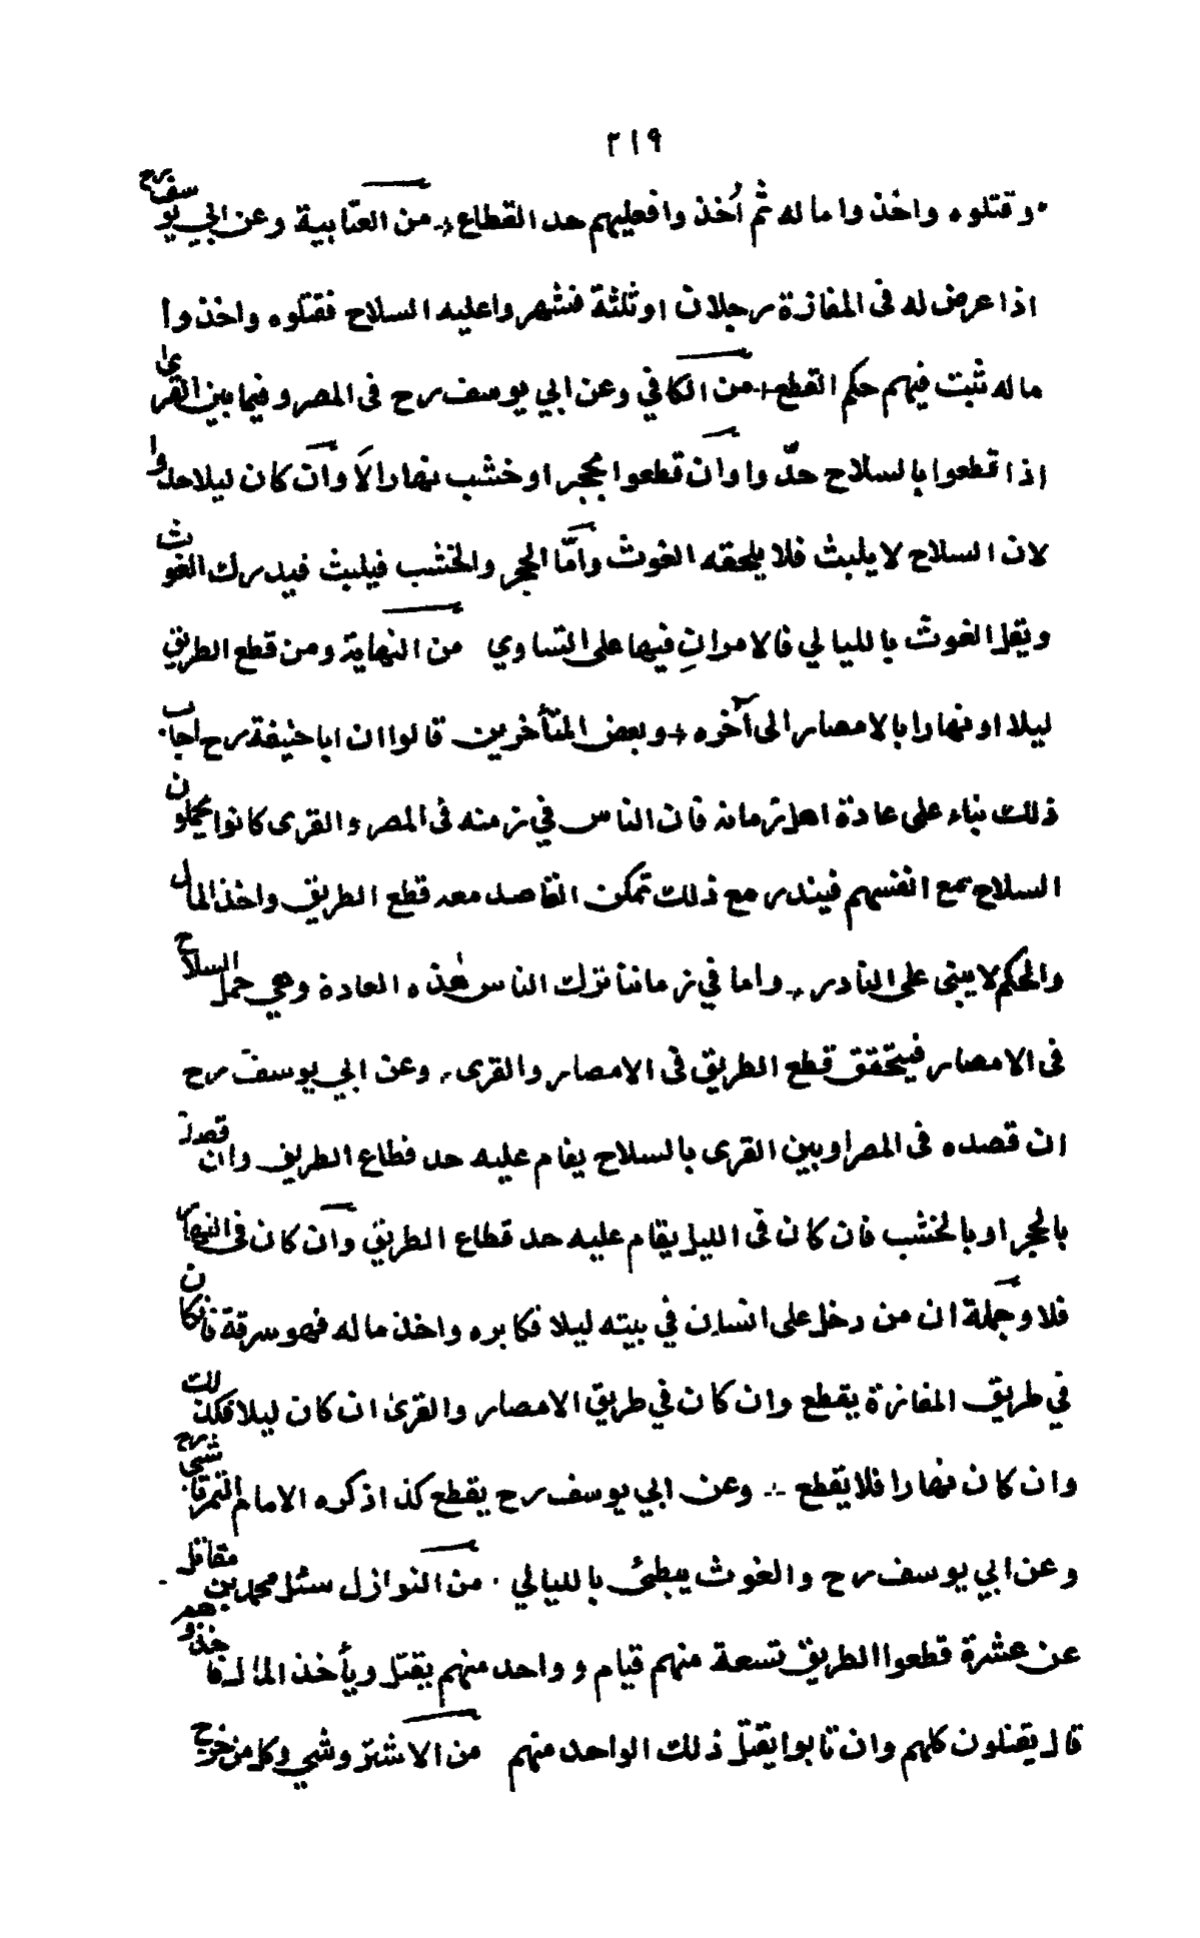 ٢١٩
وقتلوه واخذوا ماله ثم أُخذوا فعليهم حد القطاع من العتّابية وعن ابي يوسف رح
اذا عرض له فى المفازة رجلان او ثلثة فشهروا عليه السلاح فقتلوه واخذوا
ماله ثبت فيهم حكم القطع من الكافي وعن ابي يوسف رح فى المصر وفيما بين القرى
اذا قطعوا بالسلاح حدّوا وان قطعوا بحجر او خشب نهارا لا وان كان ليلا حدوا
لان السلاح لا يلبث فلا يلحقه الغوث وامّا الحجر والخشب فيلبث فيدرك الغوث
ويقل الغوث بالليالي فالامران فيها على التساوي من النهاية ومن قطع الطريق
ليلا او نهارا بالامصار الى آخره وبعض المتأخرين قالوا ان ابا حنيفة رح اجاب
ذلك بناء على عادة اهل زمانه فان الناس في زمنه فى المصر والقرى كانوا يحملون
السلاح مع انفسهم فيندر مع ذلك تمكن القاصد معه قطع الطريق واخذ المال
والحكم لا يبنى على النادر واما في زماننا ترك الناس هذه العادة وهي حمل السلاح
فى الامصار فيتحقق قطع الطريق فى الامصار والقرى وعن ابي يوسف رح
ان قصده فى المصر او بين القرى بالسلاح يقام عليه حد قطاع الطريق وان قصد
بالحجر او بالخشب فان كان فى الليل يقام عليه حد قطاع الطريق وان كان فى النهار
فلا وجملة ان من دخل على انسان في بيته ليلا فكابره واخذ ماله فهو سرقة فان كان
في طريق المفازة يقطع وان كان في طريق الامصار والقرى ان كان ليلا فكذلك
وان كان نهارا فلا يقطع وعن ابي يوسف رح يقطع كذا ذكره الامام التمرتاشي رح
وعن ابي يوسف رح والغوث يبطئ بالليالي من النوازل سئل محمد بن مقاتل
عن عشرة قطعوا الطريق تسعة منهم قيام وواحد منهم يقتل ويأخذ المال فاخذوهم
قال يقتلون كلهم وان تابوا يقتل ذلك الواحد منهم من الاشتروشي وكل من خرج